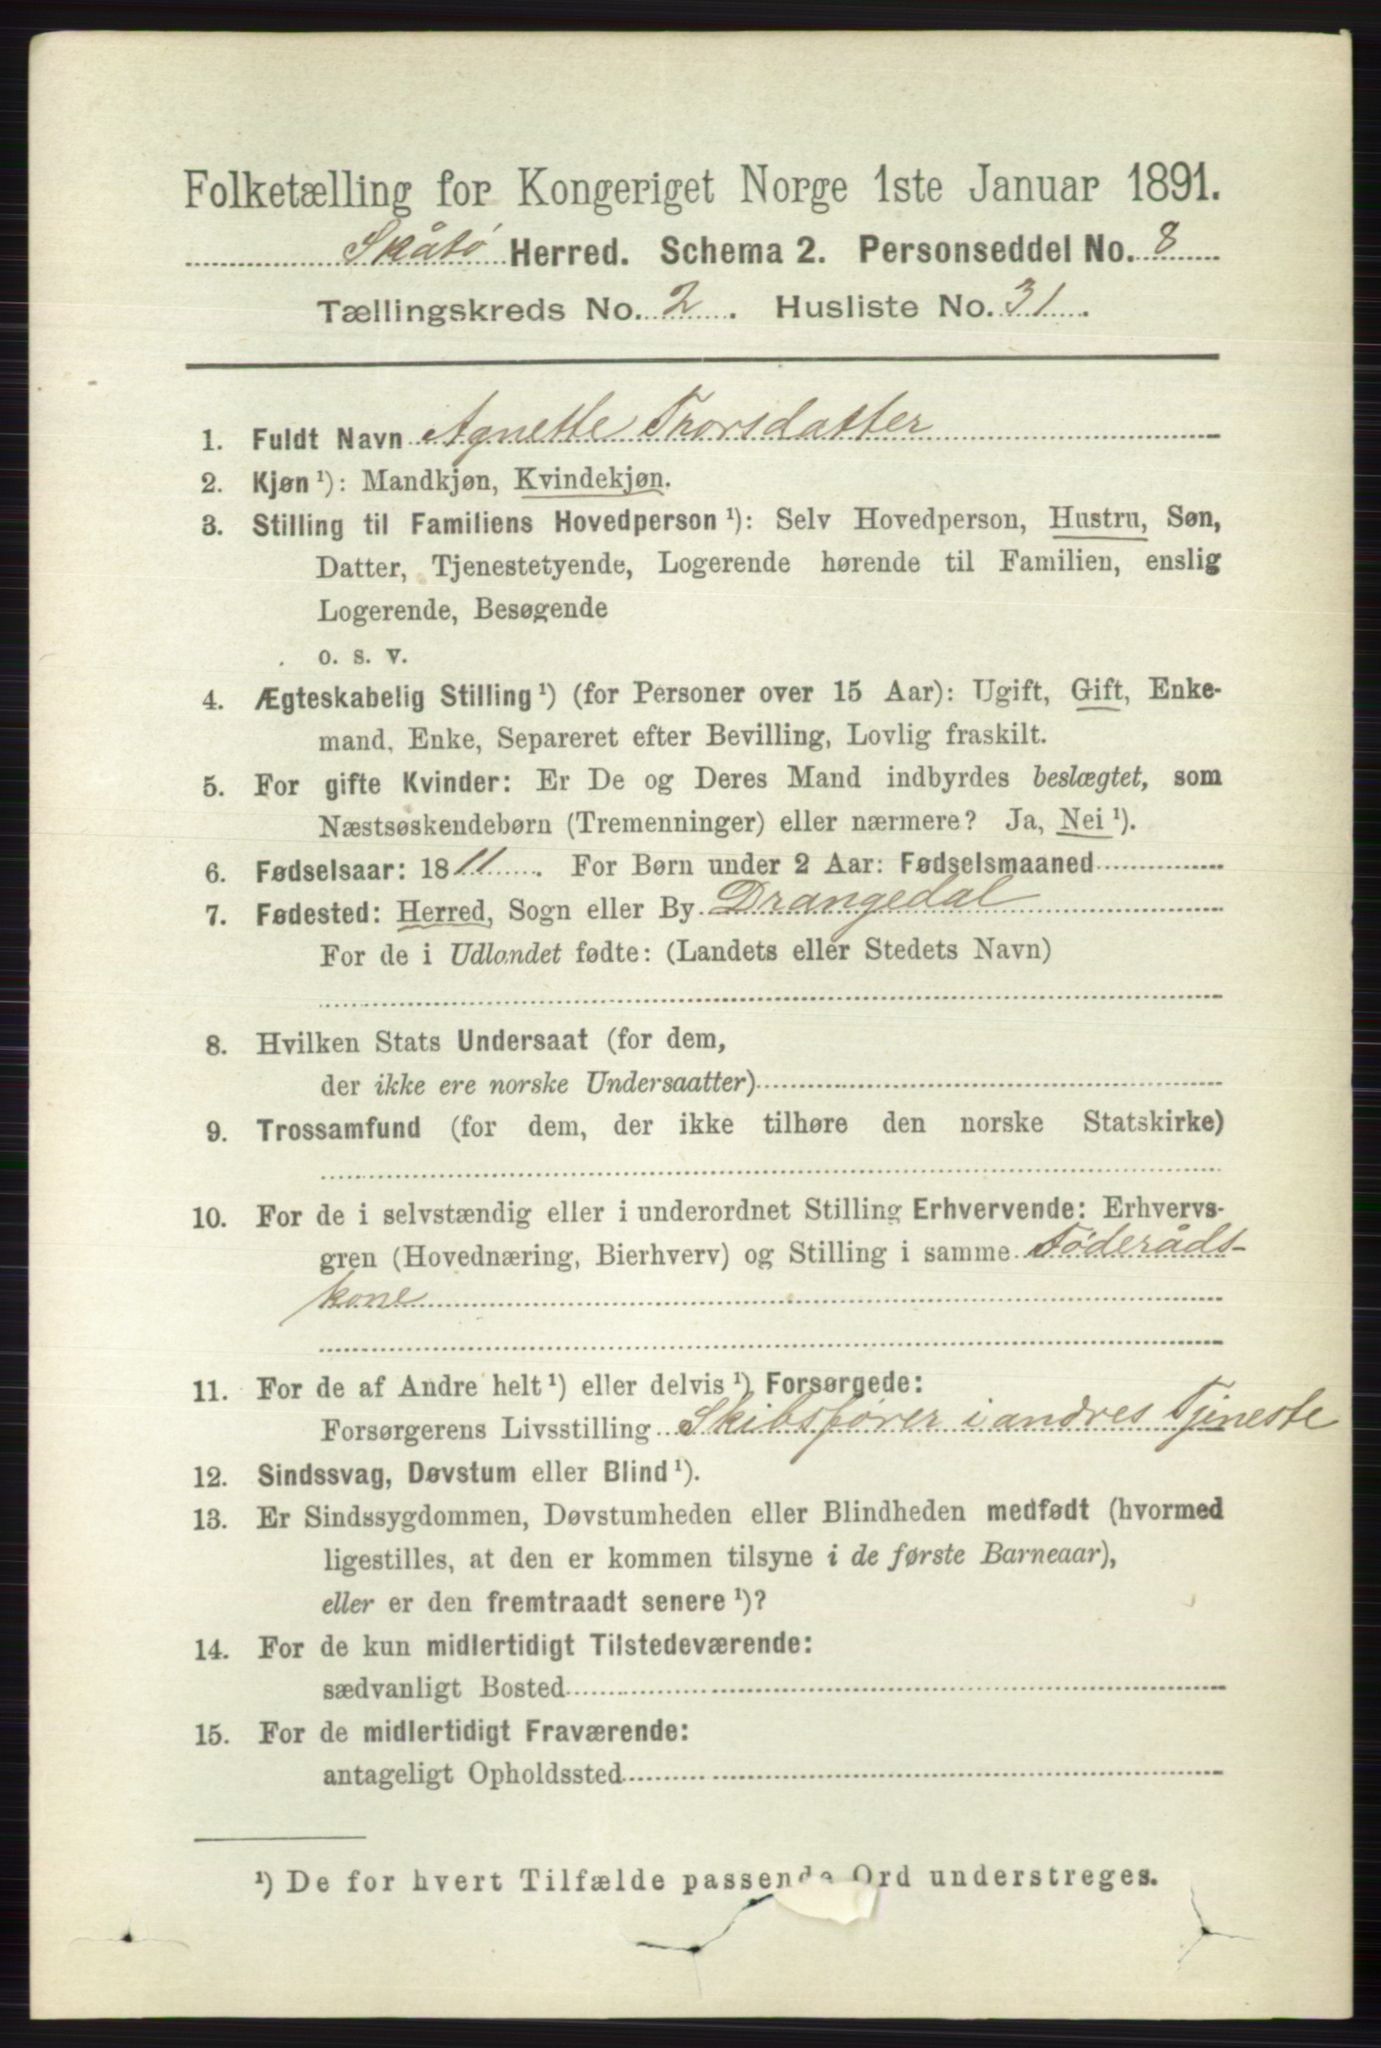 Folketælling for Kongeriget Norge 1ste Januar 1891.
Skåtø Herred. Schema 2. Personseddel No. 8
Tællingskreds No. 2. Husliste No. 31.
1. Fuldt Navn Agnette Thorsdatter
2. Kjøn ¹): Mandkjøn, Kvindekjøn.
3. Stilling til Familiens Hovedperson ¹): Selv Hovedperson, Hustru, Søn,
Datter, Tjenestetyende, Logerende hørende til Familien, enslig
Logerende, Besøgende
o. s. v.
4. Ægteskabelig Stilling ¹) (for Personer over 15 Aar): Ugift, Gift, Enke-
mand, Enke, Separeret efter Bevilling, Lovlig fraskilt.
5. For gifte Kvinder: Er De og Deres Mand indbyrdes beslægtet, som
Næstsøskendebørn (Tremenninger) eller nærmere? Ja, Nei ¹).
6. Fødselsaar: 1811. For Børn under 2 Aar: Fødselsmaaned
7. Fødested: Herred, Sogn eller By Drangedal
For de i Udlandet fødte: (Landets eller Stedets Navn)
8. Hvilken Stats Undersaat (for dem,
der ikke ere norske Undersaatter)
9. Trossamfund (for dem, der ikke tilhøre den norske Statskirke)
10. For de i selvstændig eller i underordnet Stilling Erhvervende: Erhvervs-
gren (Hovednæring, Bierhverv) og Stilling i samme Föderåds-
kone
11. For de af Andre helt ¹) eller delvis ¹) Forsørgede:
Forsørgerens Livsstilling Skibsfører i andres Tjeneste
12. Sindssvag, Døvstum eller Blind ¹).
13. Er Sindssygdommen, Døvstumheden eller Blindheden medfødt (hvormed
ligestilles, at den er kommen tilsyne i de første Barneaar),
eller er den fremtraadt senere ¹)?
14. For de kun midlertidigt Tilstedeværende:
sædvanligt Bosted
15. For de midlertidigt Fraværende:
antageligt Opholdssted
¹) De for hvert Tilfælde passende Ord understreges.